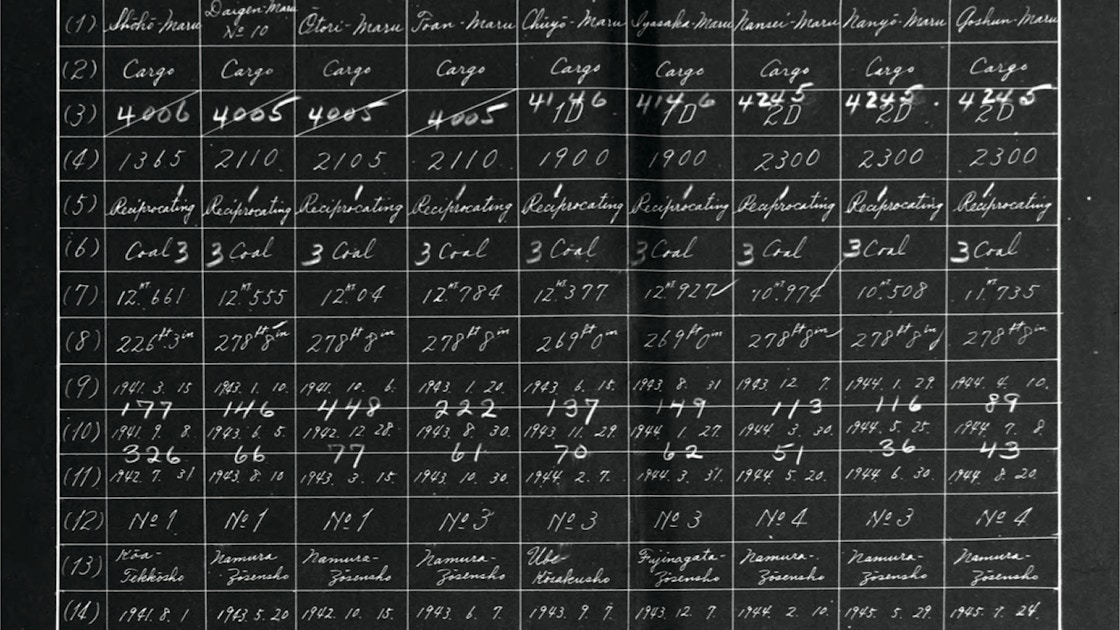 (1) Shōhō-Maru Daigen-Maru No 10 Ōtori-Maru Toan-Maru Chuyō-Maru Iyasaka-Maru Nansei-Maru Nanyō-Maru Goshun-Maru
(2) Cargo Cargo Cargo Cargo Cargo Cargo Cargo Cargo Cargo
(3) 4006 4005 4005 4005 4146 1D 4146 1D 4245 2D 4245 2D 4245 2D
(4) 1365 2110 2105 2110 1900 1900 2300 2300 2300
(5) Reciprocating Reciprocating Reciprocating Reciprocating Reciprocating Reciprocating Reciprocating Reciprocating Reciprocating
(6) Coal 3 3 Coal 3 Coal 3 Coal 3 Coal 3 Coal 3 Coal 3 Coal 3 Coal
(7) 12.kt661 12.kt555 12.kt04 12.kt784 12.kt377 12.kt927 10.kt974 10.kt508 11.kt735
(8) 226ft3in 278ft8in 278ft8in 278ft8in 269ft0in 269ft0in 278ft8in 278ft8in 278ft8in
(9) 1941. 3. 15 1943. 1. 10. 1941. 10. 6. 1943. 1. 20. 1943. 6. 15. 1943 8. 31 1943 12 7. 1944. 1. 29 1944. 4. 10.
177 146 448 222 137 149 113 116 89
(10) 1941. 9. 8. 1943. 6. 5. 1942. 12 28. 1943. 8. 30. 1943. 11. 29. 1944. 1. 27. 1944. 3. 30. 1944. 5. 25. 1944. 7. 8.
326 66 77 61 70 62 51 36 43
(11) 1942. 7. 31 1943. 8. 10 1943. 3. 15. 1943. 10. 30. 1944. 2. 7. 1944. 3. 31. 1944. 5. 20. 1944. 6. 30. 1944. 8. 20.
(12) No 1 No 1 No 1 No 3 No 3 No 3 No 4 No 3 No 4
(13) Kōa-Tekkōsho Namura Zōsensho Namura-Zōsensho Namura-Zōsensho Ube-Kōsakusho Fujinagata-Zōsensho Namura-Zōsensho Namura-Zōsensho Namura-Zōsensho
(14) 1941. 8. 1 1943. 5. 20 1942. 10. 15. 1943. 6. 7. 1943. 9. 7. 1943. 12. 7. 1944. 2. 10. 1945. 5. 29. 1945. 7. 24.